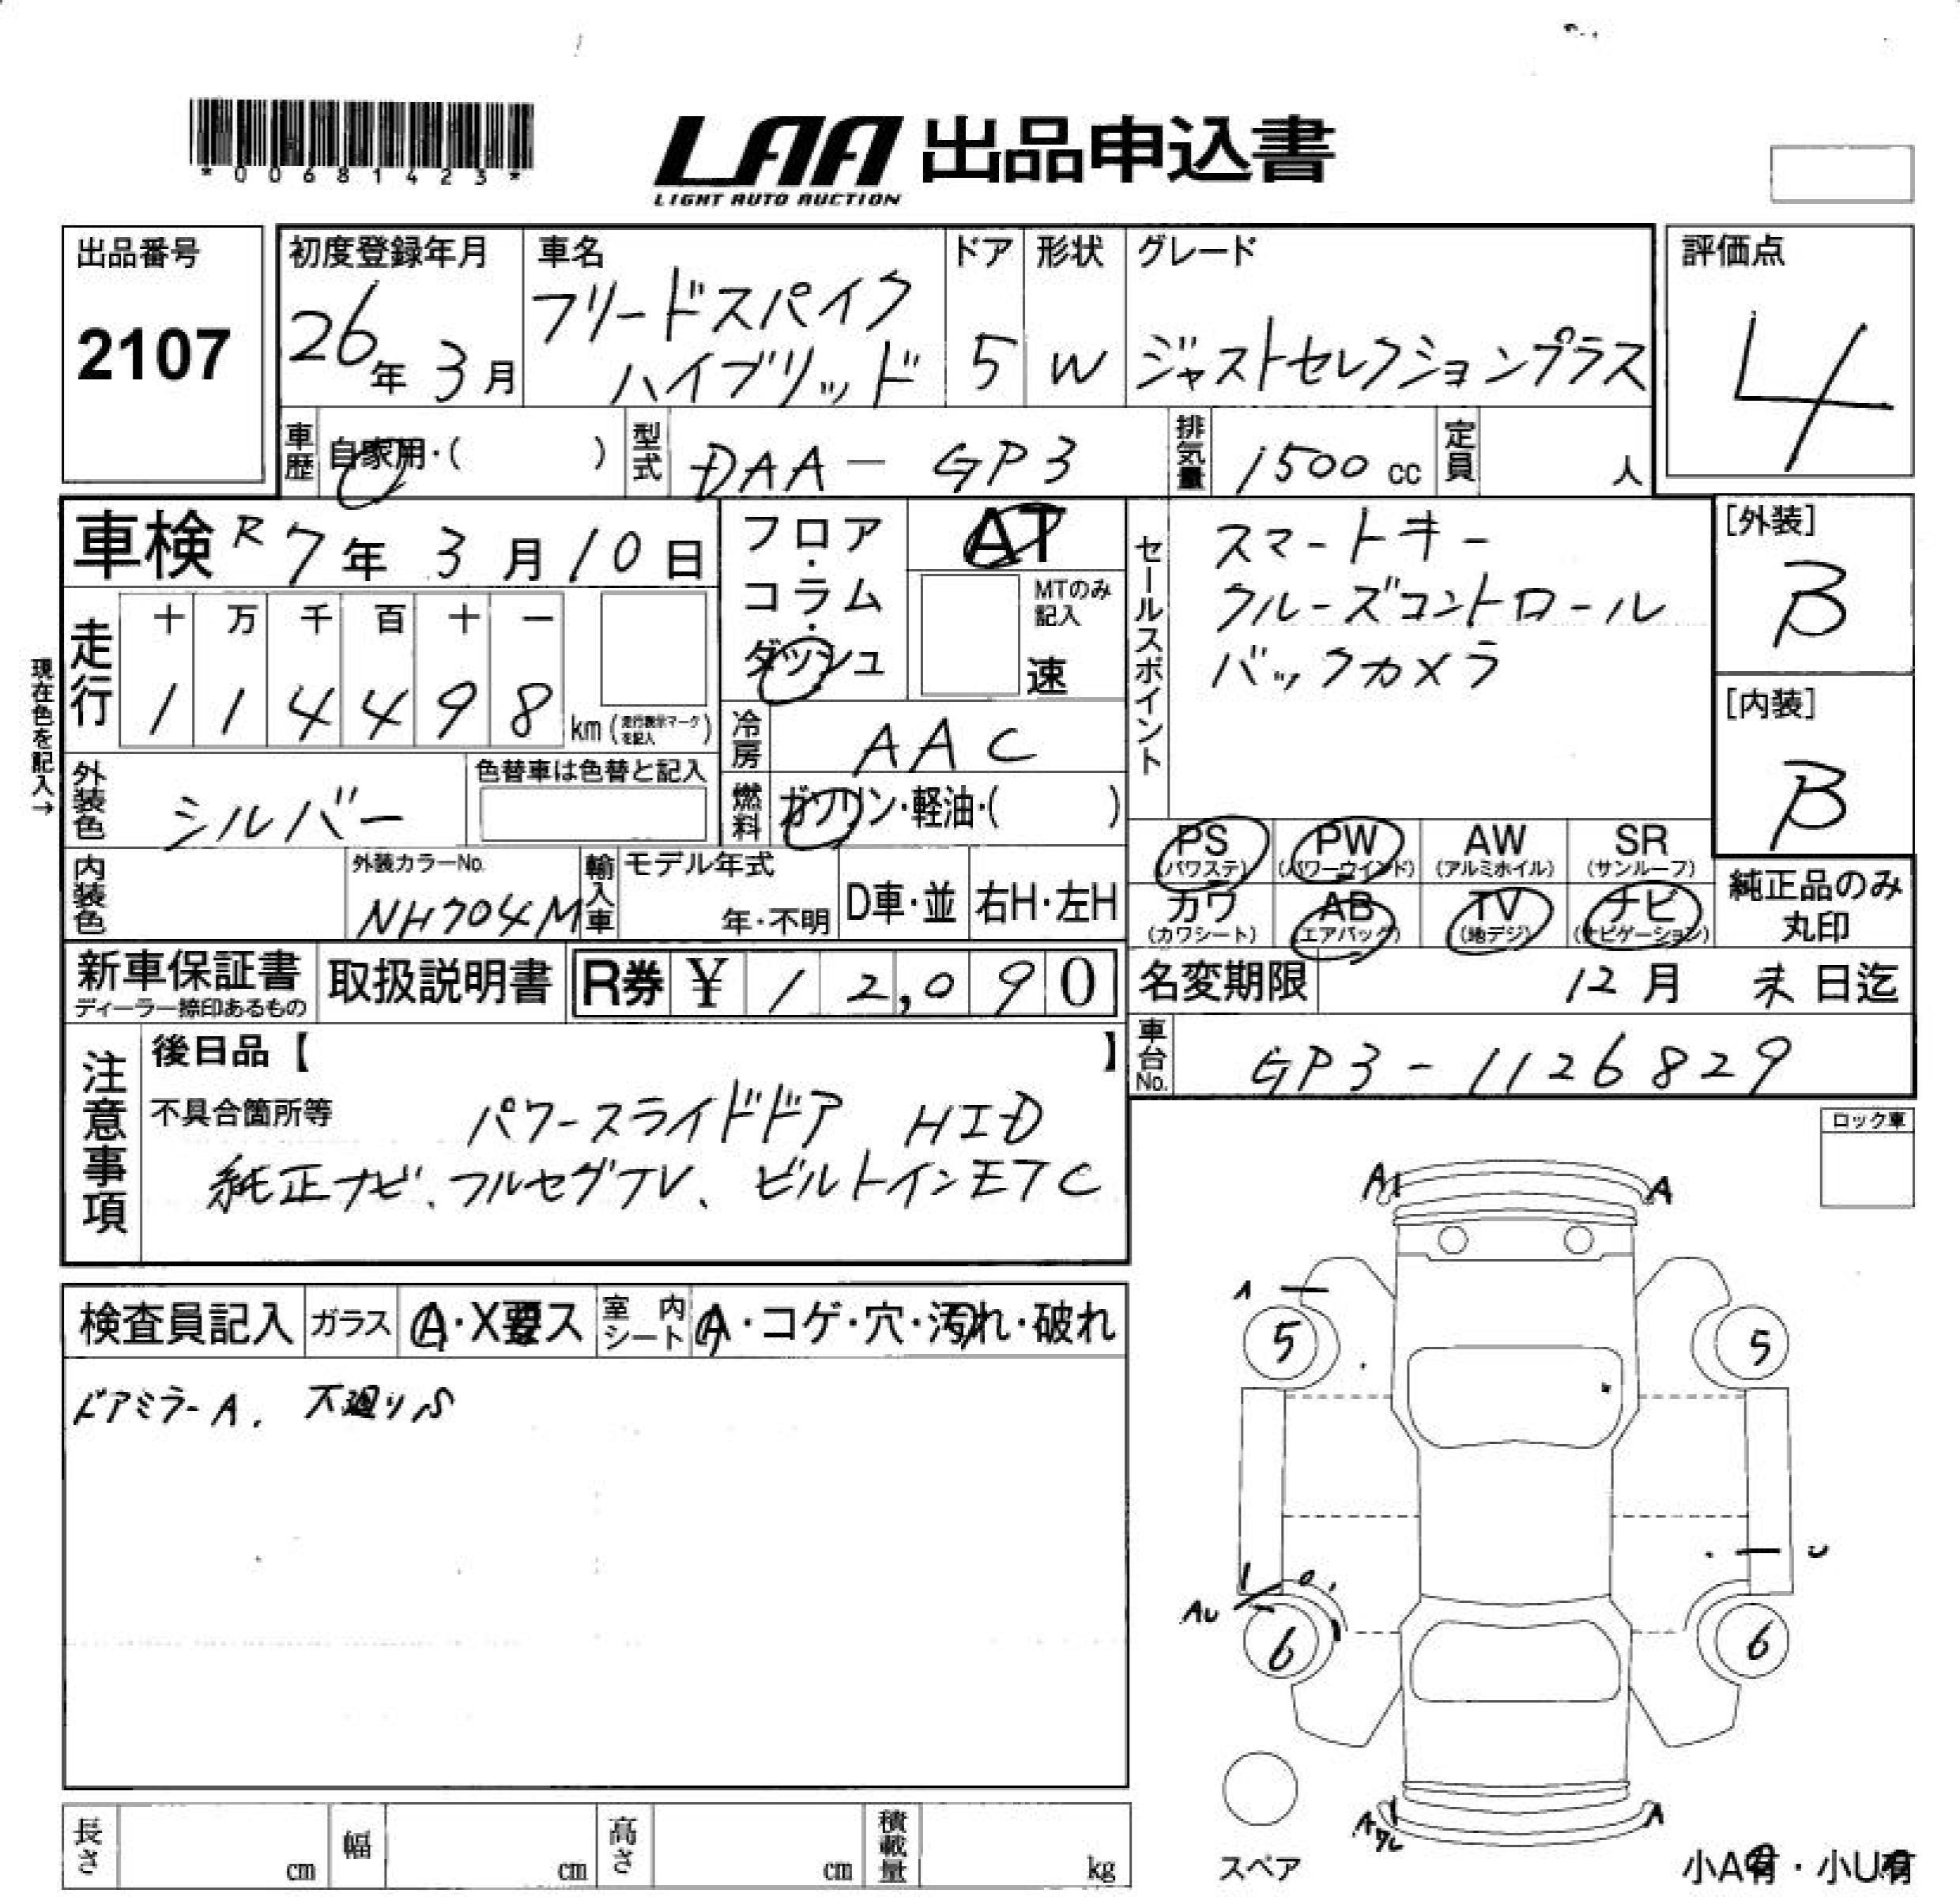 *00681423*
LAA 出品申込書
LIGHT AUTO AUCTION
出品番号
2107
初度登録年月
26年 3月
車名
フリードスパイク
ハイブリッド
ドア
5
形状
W
グレード
ジャストセレクションプラス
評価点
4
車歴 自家用・( )
型式 DAA-GP3
排気量 1500 cc
定員 人
車検 R7年 3月 10日
フロア・
コラム・
ダッシュ
AT
MTのみ
記入
速
セールスポイント
スマートキー
クルーズコントロール
バックカメラ
[外装]
B
[内装]
B
現在色を記入→
走行
十 万 千 百 十 一
1 1 4 4 9 8 km (走行表示マークを記入)
冷房 AAC
外装色 シルバー
色替車は色替と記入
燃料 ガソリン・軽油・( )
内装色
外装カラーNo.
NH704M
輸入車
モデル年式
年・不明
D車・並
右H・左H
PS
(パワステ)
PW
(パワーウインド)
AW
(アルミホイル)
SR
(サンルーフ)
カワ
(カワシート)
AB
(エアバッグ)
TV
(地デジ)
ナビ
(ナビゲーション)
純正品のみ
丸印
新車保証書
ディーラー捺印あるもの
取扱説明書
R券 ¥ 12,090
名変期限 12月 末日迄
車台No. GP3-1126829
注意事項
後日品【 】
不具合箇所等 パワースライドドア HID
純正ナビ、フルセグTV、ビルトインETC
ロック車
検査員記入
ガラス A・X要ス
室内シート A・コゲ・穴・汚れ・破れ
ドアミラーA. 下廻りS
A1 A
A
5 5
U
AU
6 6
A
スペア
小A有・小U有
長さ cm
幅 cm
高さ cm
積載量 kg